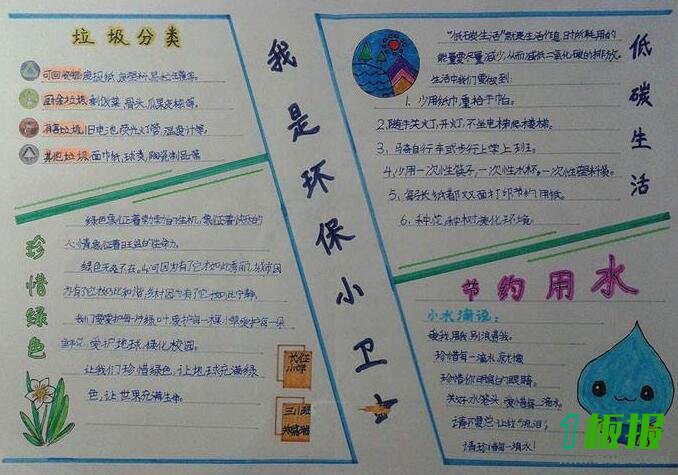 我是环保小卫士
垃圾分类
可回收物：废报纸、
厨余垃圾：剩饭菜、骨头、瓜果皮核等。
有害垃圾：旧电池、荧光灯管、温度计等。
其他垃圾：面巾纸、球麦、陶瓷制品等
珍惜绿色
绿色象征着勃勃的生机，象征着快乐的
心情，象征着旺盛的生命力。
绿色无处不在。山河因为有了它才如此秀丽，城市因
为有了它才如此和谐，乡村因为有了它才如此宁静。
我们要爱护每一片绿叶，爱护每一棵小草，爱护每一朵
鲜花，爱护地球，绿化校园。
让我们珍惜绿色，让地球充满绿
色，让世界充满生命。
长征
小学
三(1)班
低碳生活
“低碳生活”就是生活作息时所耗用的
能量要尽量减少，从而减低二氧化碳的排放。
生活中我们要做到：
1、少用纸巾，重拾手帕。
2、随手关灯、开灯，不坐电梯爬楼梯。
3、骑自行车或步行上学上班。
4、少用一次性筷子，一次性水杯，一次性塑料袋。
5、每张纸都双面打印节约用纸。
6、种花、种树美化环境。
节约用水
小水滴说：
爱我，用我，别浪费我。
珍惜每一滴水，就像
珍惜你明亮的眼睛。
关好水龙头，爱惜每一滴水。
请不要忘让我“流泪”；
请珍惜每一滴水！
板报